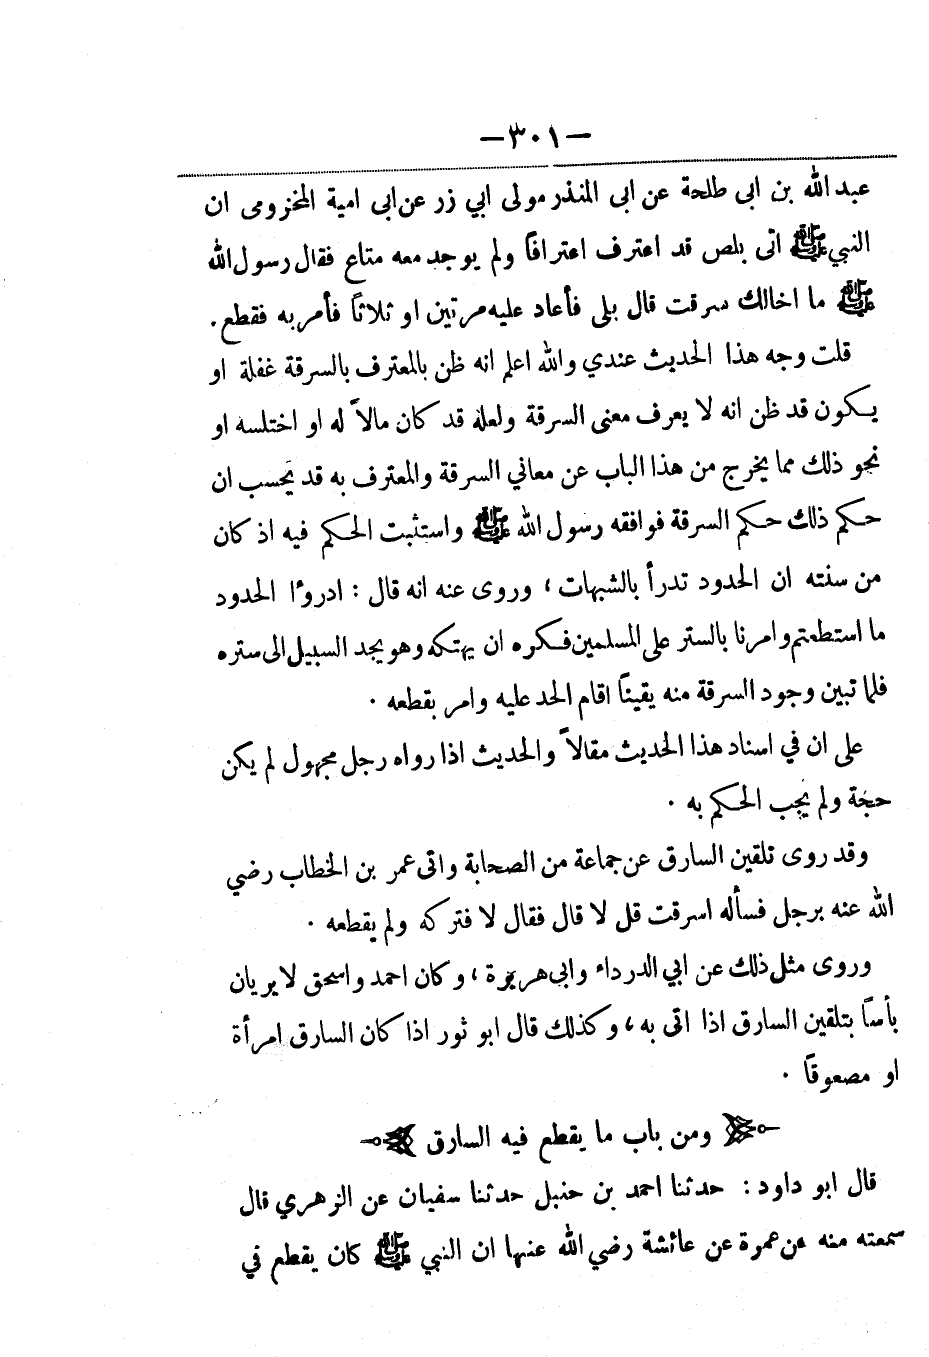 —٣٠١—
عبد الله بن ابى طلحة عن ابى المنذر مولى ابي زر عن ابى امية المخزومى ان
النبي ﷺ اتى بلص قد اعترف اعترافاً ولم يوجد معه متاع فقال رسول الله
ﷺ ما اخالك سرقت قال بلى فأعاد عليه مرتين او ثلاثاً فأمر به فقطع .
قلت وجه هذا الحديث عندي والله اعلم انه ظن بالمعترف بالسرقة غفلة او
يكون قد ظن انه لا يعرف معنى السرقة ولعله قد كان مالاً له او اختلسه او
نحو ذلك مما يخرج من هذا الباب عن معاني السرقة والمعترف به قد يحسب ان
حكم ذلك حكم السرقة فوافقه رسول الله ﷺ واستثبت الحكم فيه اذ كان
من سنته ان الحدود تدرأ بالشبهات ، وروى عنه انه قال : ادروًا الحدود
ما استطعتم وامرنا بالستر على المسلمين فكره ان يهتكه وهو يجد السبيل الى ستره
فلما تبين وجود السرقة منه يقيناً اقام الحد عليه وامر بقطعه .
على ان في اسناد هذا الحديث مقالاً والحديث اذا رواه رجل مجهول لم يكن
حجة ولم يجب الحكم به .
وقد روى تلقين السارق عن جماعة من الصحابة واتى عمر بن الخطاب رضي
الله عنه برجل فسأله اسرقت قل لا قال فقال لا فتركه ولم يقطعه .
وروى مثل ذلك عن ابي الدرداء وابى هريرة ، وكان احمد واسحق لا يريان
بأساً بتلقين السارق اذا اتى به ، وكذلك قال ابو ثور اذا كان السارق امرأة
او مصعوقاً .
ومن باب ما يقطع فيه السارق
قال ابو داود : حدثنا احمد بن حنبل حدثنا سفيان عن الزهري قال
سمعته منه عن عمرة عن عائشة رضي الله عنها ان النبي ﷺ كان يقطع في